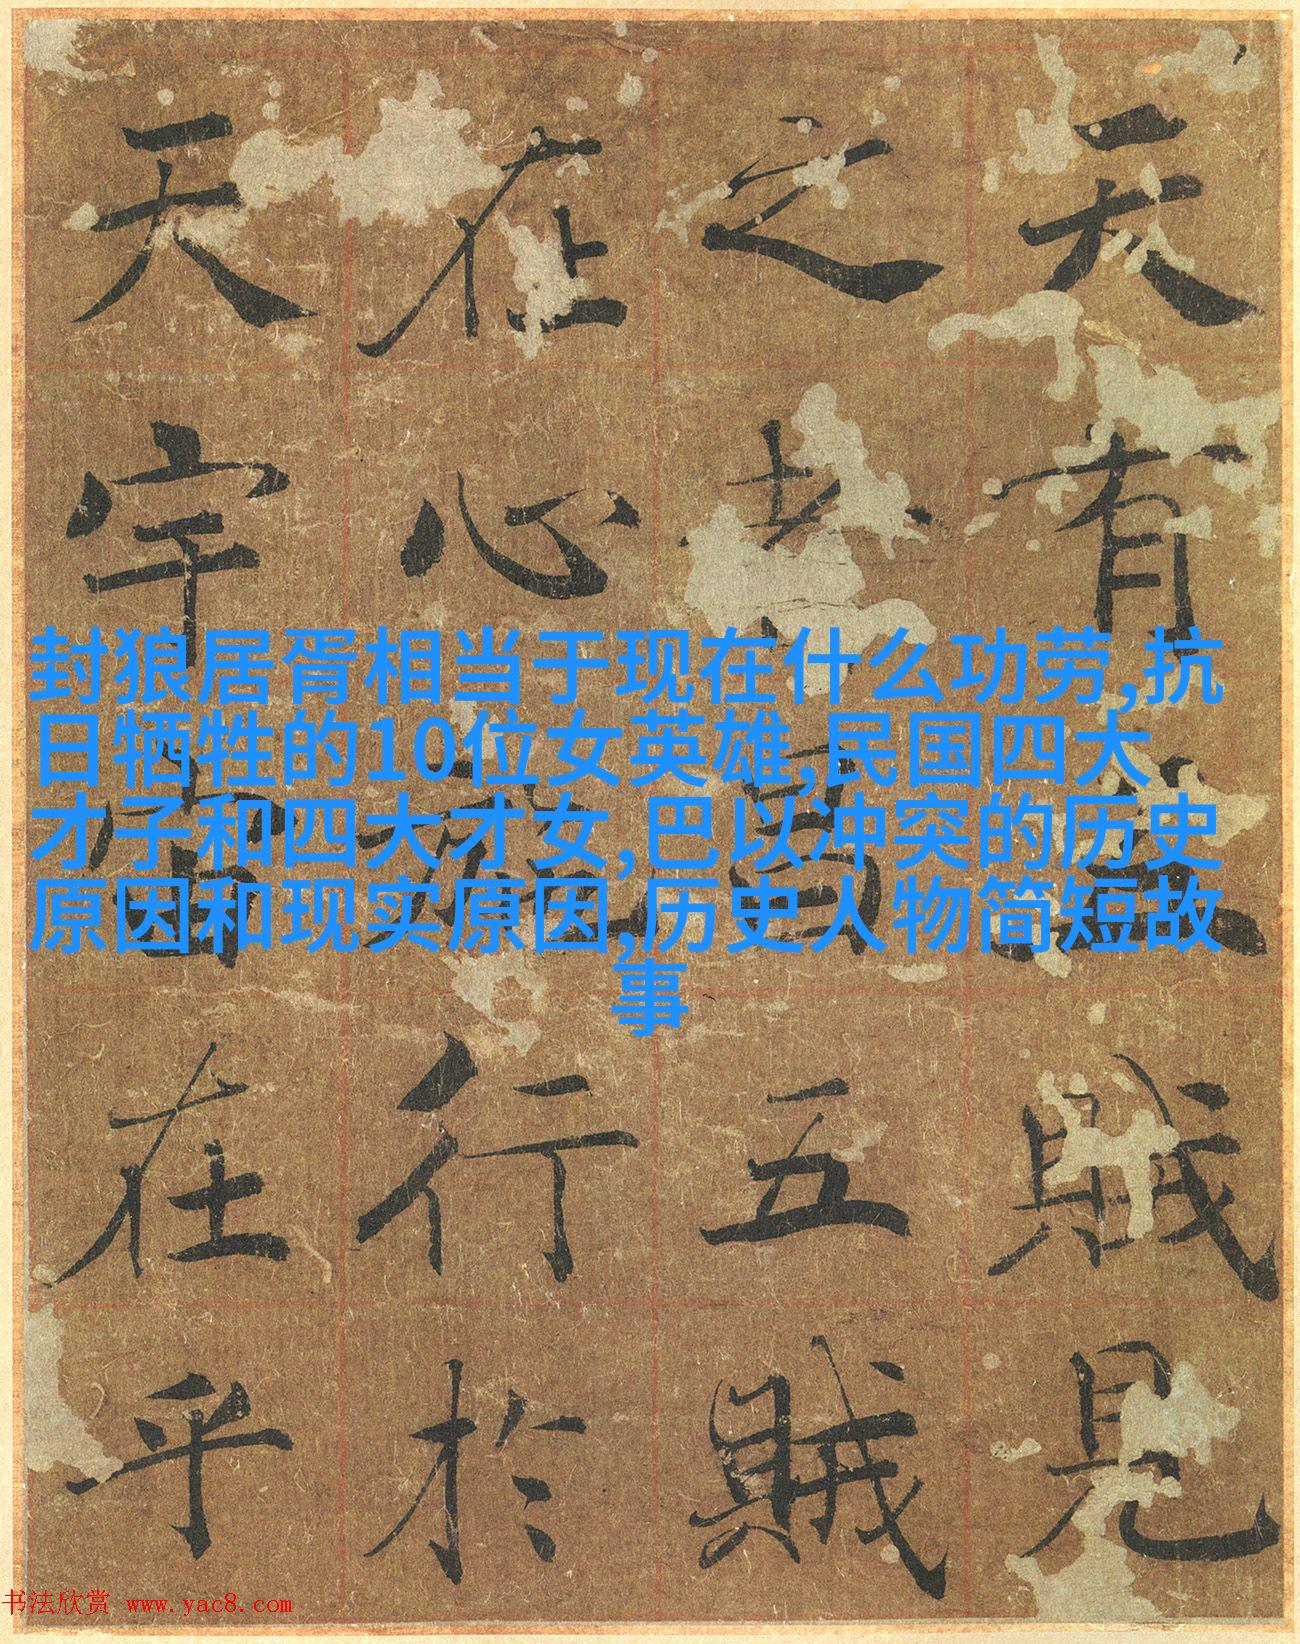 天有賊見
之昌五賊
在心行於
天宇宙在乎
封狼居胥相当于现在什么功劳,抗
日牺牲的10位女英雄,民国四大
才子和四大才女,巴以冲突的历史
原因和现实原因,历史人物简短故
事
书法欣赏 www.yac8.com